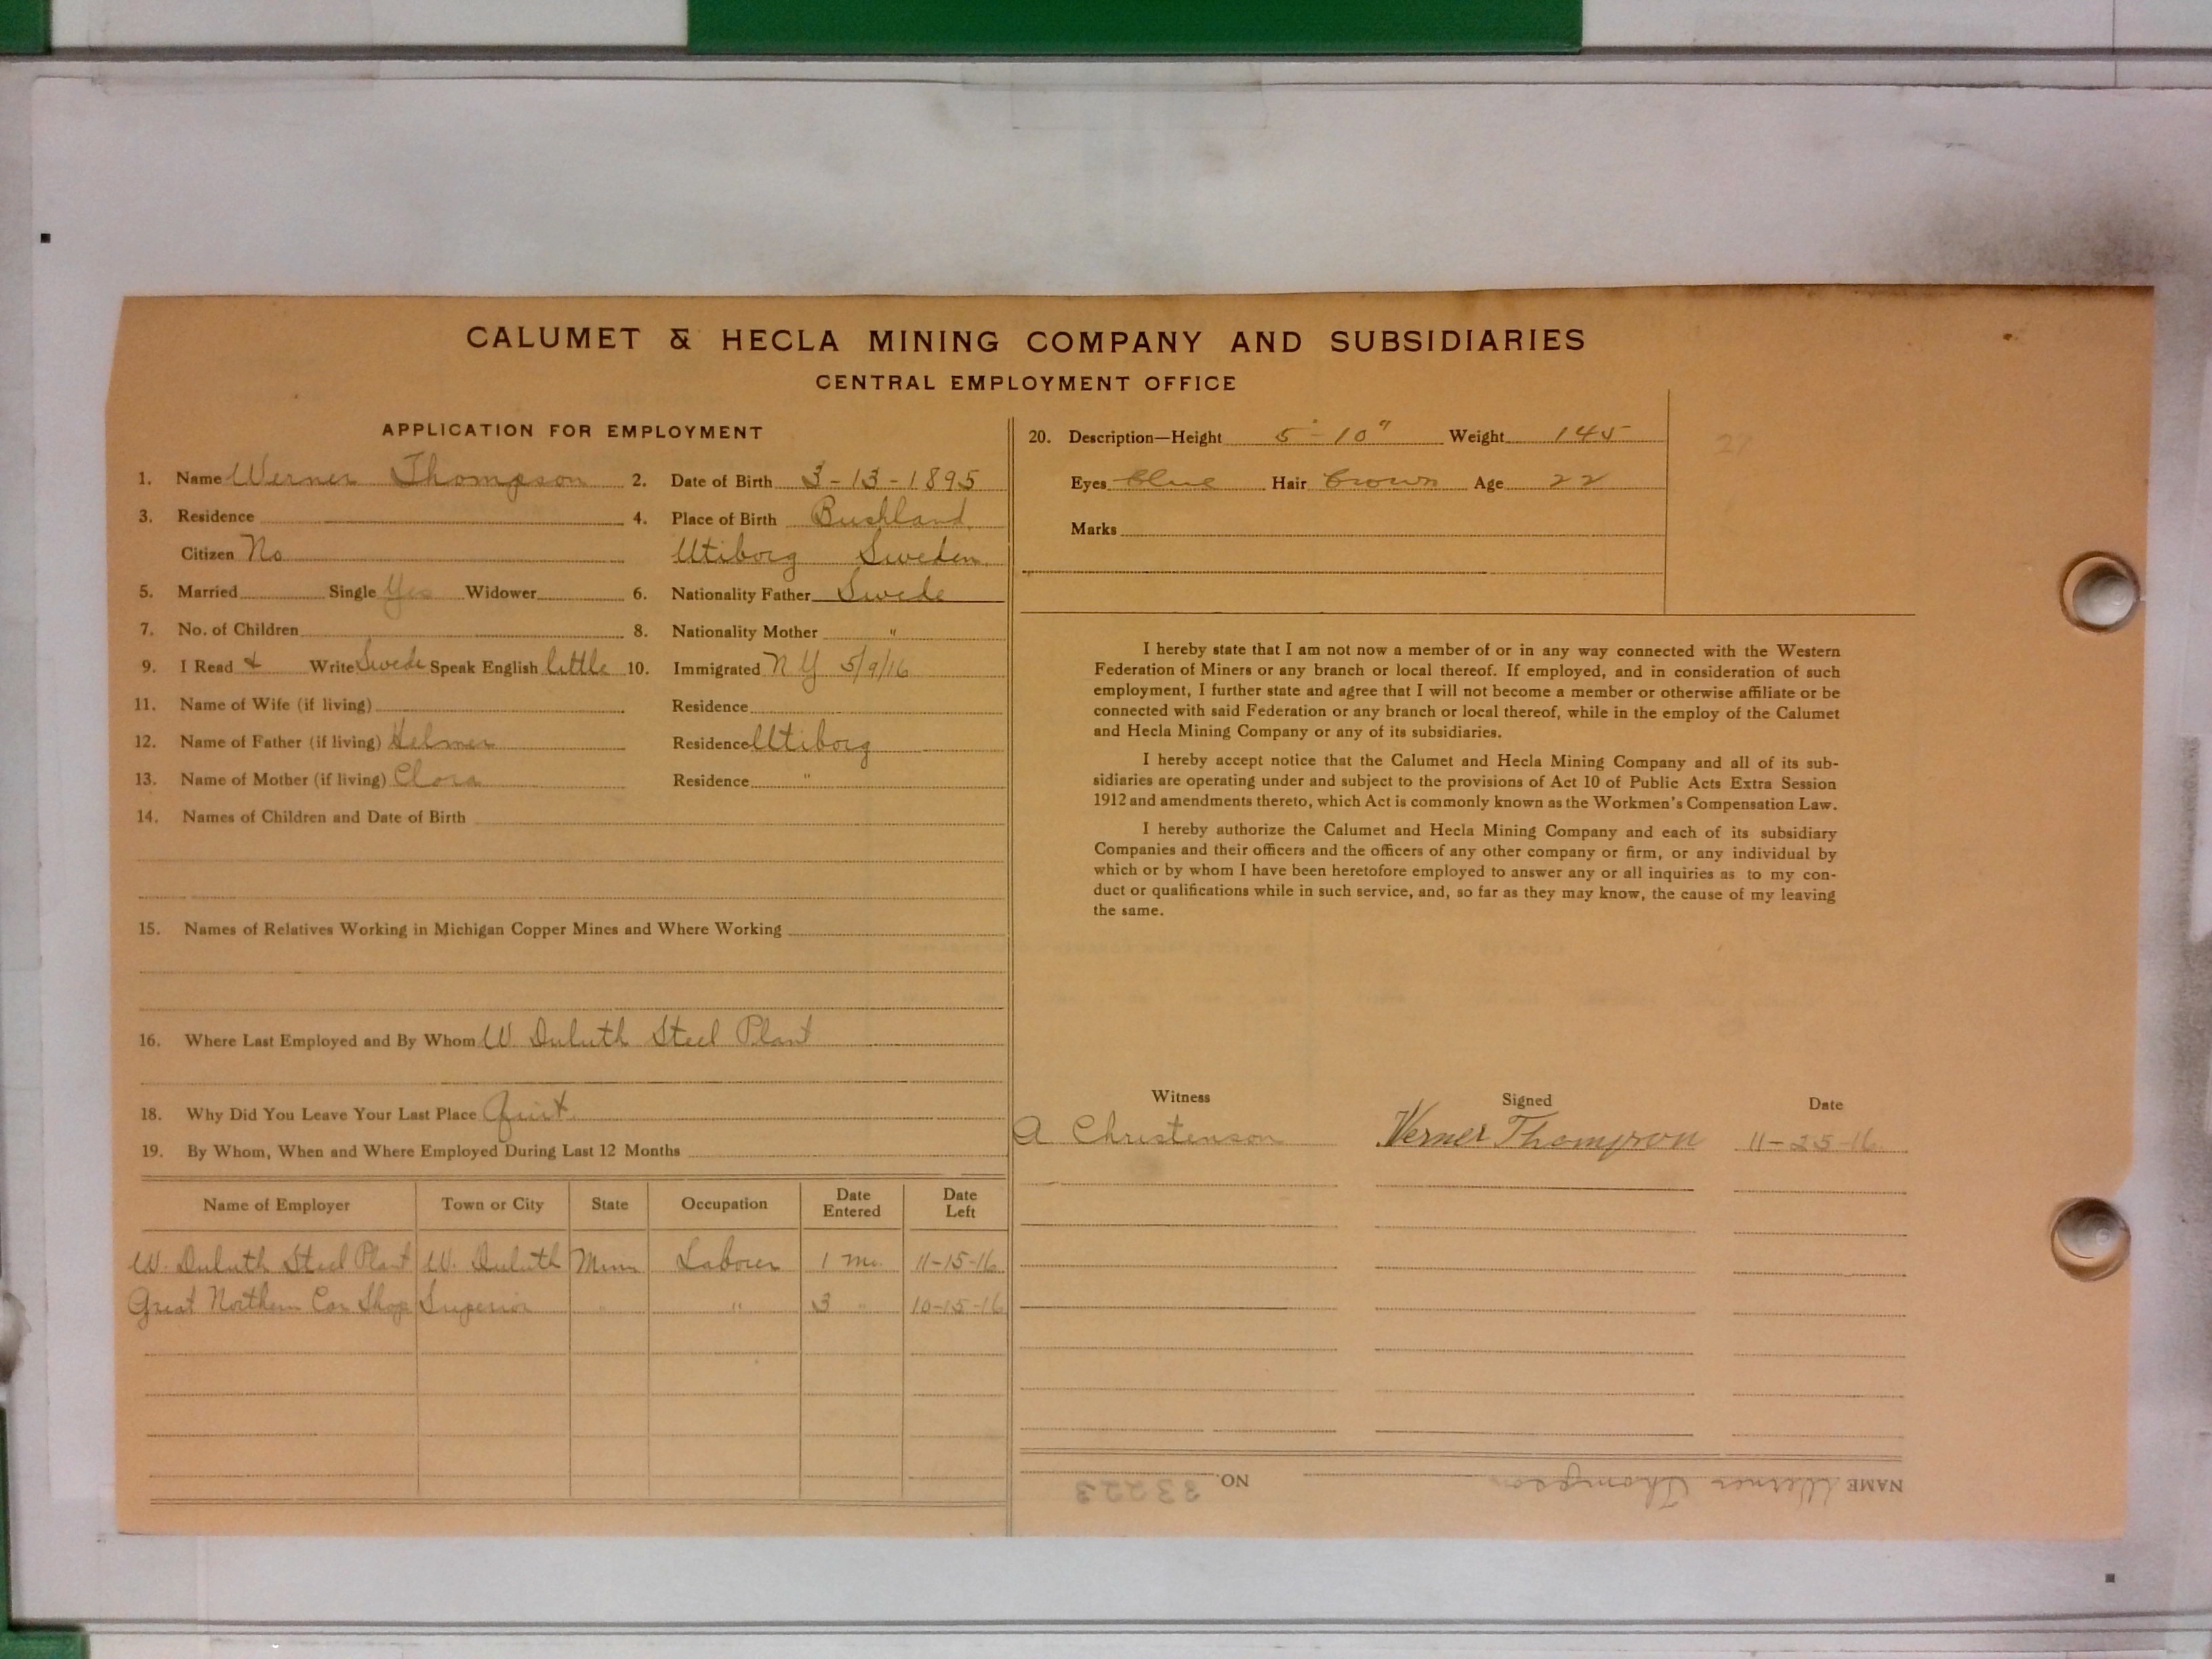 CALUMET & HECLA MINING COMPANY AND SUBSIDIARIES
CENTRAL EMPLOYMENT OFFICE
APPLICATION FOR EMPLOYMENT
1. Name Werner Thompson 2. Date of Birth 3-13-1895
3. Residence 4. Place of Birth Buskland
Citizen No Utiborg Sweden
5. Married Single Yes Widower 6. Nationality Father Swede
7. No. of Children 8. Nationality Mother "
9. I Read & Write Swede Speak English little 10. Immigrated N Y 5/9/16
11. Name of Wife (if living) Residence
12. Name of Father (if living) Helmer Residence Utiborg
13. Name of Mother (if living) Clara Residence "
14. Names of Children and Date of Birth
15. Names of Relatives Working in Michigan Copper Mines and Where Working
16. Where Last Employed and By Whom W Duluth Steel Plant
18. Why Did You Leave Your Last Place Quit
19. By Whom, When and Where Employed During Last 12 Months
Name of Employer Town or City State Occupation Date Entered Date Left
W. Duluth Steel Plant W. Duluth Minn Laborer 1 mo. 11-15-16
Great Northern Car Shop Superior " " 3 " 10-15-16
20. Description—Height 5'-10" Weight 145
Eyes blue Hair brown Age 22
Marks
27
I hereby state that I am not now a member of or in any way connected with the Western
Federation of Miners or any branch or local thereof. If employed, and in consideration of such
employment, I further state and agree that I will not become a member or otherwise affiliate or be
connected with said Federation or any branch or local thereof, while in the employ of the Calumet
and Hecla Mining Company or any of its subsidiaries.
I hereby accept notice that the Calumet and Hecla Mining Company and all of its sub-
sidiaries are operating under and subject to the provisions of Act 10 of Public Acts Extra Session
1912 and amendments thereto, which Act is commonly known as the Workmen's Compensation Law.
I hereby authorize the Calumet and Hecla Mining Company and each of its subsidiary
Companies and their officers and the officers of any other company or firm, or any individual by
which or by whom I have been heretofore employed to answer any or all inquiries as to my con-
duct or qualifications while in such service, and, so far as they may know, the cause of my leaving
the same.
Witness Signed Date
A Christenson Verner Thompson 11-25-16
NAME Werner Thompson NO. 33223